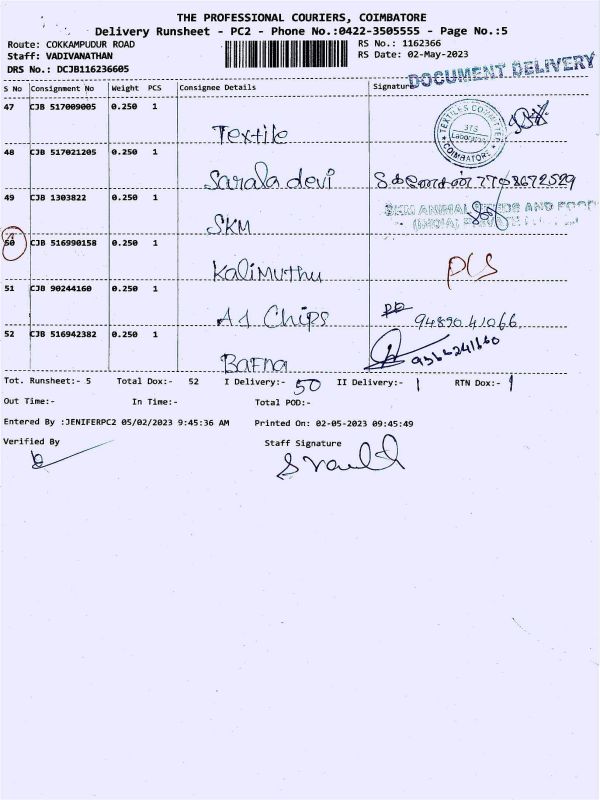 THE PROFESSIONAL COURIERS, COIMBATORE
Delivery Runsheet - PC2 - Phone No.:0422-3505555 - Page No.:5
Route: COKKAMPUDUR ROAD
RS No.: 1162366
Staff: VADIVANATHAN
RS Date: 02-May-2023
DRS No.: DCJB116236605
DOCUMENT DELIVERY
S No Consignment No Weight PCS Consignee Details Signature
47 CJB 517009005 0.250 1 Textile
TEXTILES COMMITTEE
Laboratory
COIMBATORE
48 CJB 517021205 0.250 1 Sarala devi
49 CJB 1303822 0.250 1 SKM
SKM ANIMAL FEEDS AND FOODS
(INDIA) PRIVATE
50 CJB 516990158 0.250 1 Kalimuthu PCS
51 CJB 90244160 0.250 1 A1 Chips 9489041066
52 CJB 516942382 0.250 1 Bafna
Tot. Runsheet:- 5 Total Dox:- 52 I Delivery:- 50 II Delivery:- 1 RTN Dox:- 1
Out Time:- In Time:- Total POD:-
Entered By :JENIFERPC2 05/02/2023 9:45:36 AM Printed On: 02-05-2023 09:45:49
Verified By Staff Signature